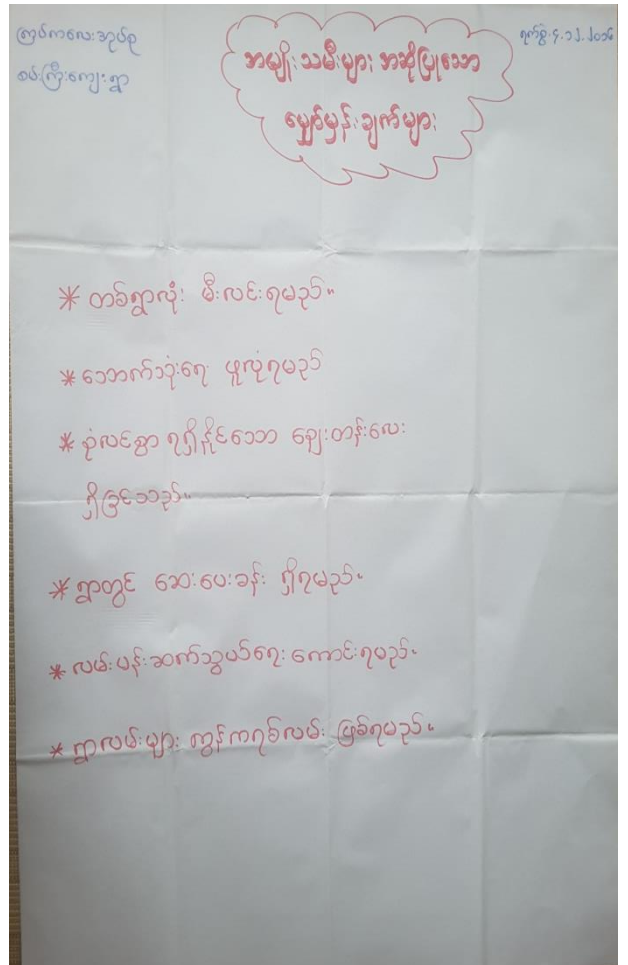 ကြပ်ကလေးအုပ်စု
စမ်းကြီးကျေးရွာ
ရက်စွဲ၊ ၄.၁၂.၂၀၁၆
အမျိုးသမီးများ အဆိုပြုသော
မျှော်မှန်းချက်များ
* တစ်ရွာလုံး မီးလင်းရမည်။
* သောက်သုံးရေ ဖူလုံရမည်
* စုံလင်စွာ ရရှိနိုင်သော ဈေးတန်းလေး
ရှိခြင်သည်။
* ရွာတွင် ဆေးပေးခန်း ရှိရမည်။
* လမ်းပန်းဆက်သွယ်ရေး ကောင်းရမည်။
* ရွာလမ်းများ ကွန်ကရစ်လမ်း ဖြစ်ရမည်။